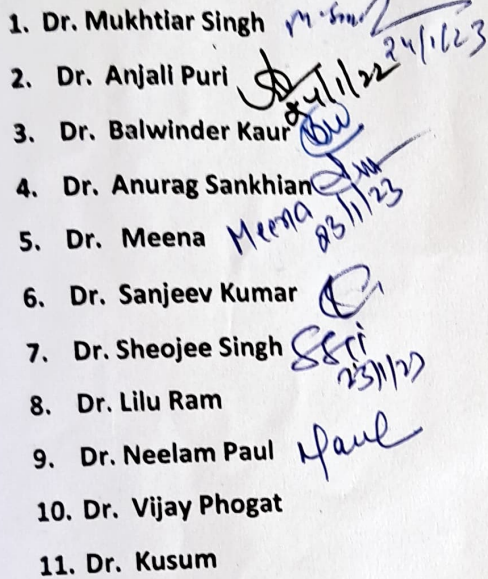 1. Dr. Mukhtiar Singh 24/1/23
2. Dr. Anjali Puri 24/1/22
3. Dr. Balwinder Kaur
4. Dr. Anurag Sankhian
5. Dr. Meena Meena 23/1/23
6. Dr. Sanjeev Kumar
7. Dr. Sheojee Singh
8. Dr. Lilu Ram
9. Dr. Neelam Paul Paul
10. Dr. Vijay Phogat
11. Dr. Kusum